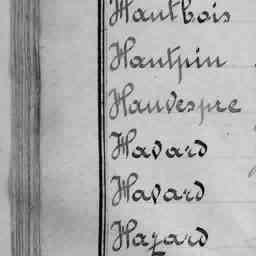 Hautbois
Hautpin
Hauvespre
Havard
Havard
Hazard